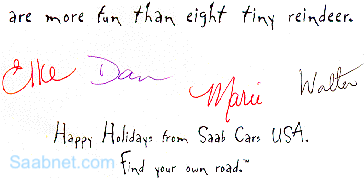 are more fun than eight tiny reindeer.
Elke Dan Marie Walter
Happy Holidays from Saab Cars USA.
Saabnet.com
Find your own road.™